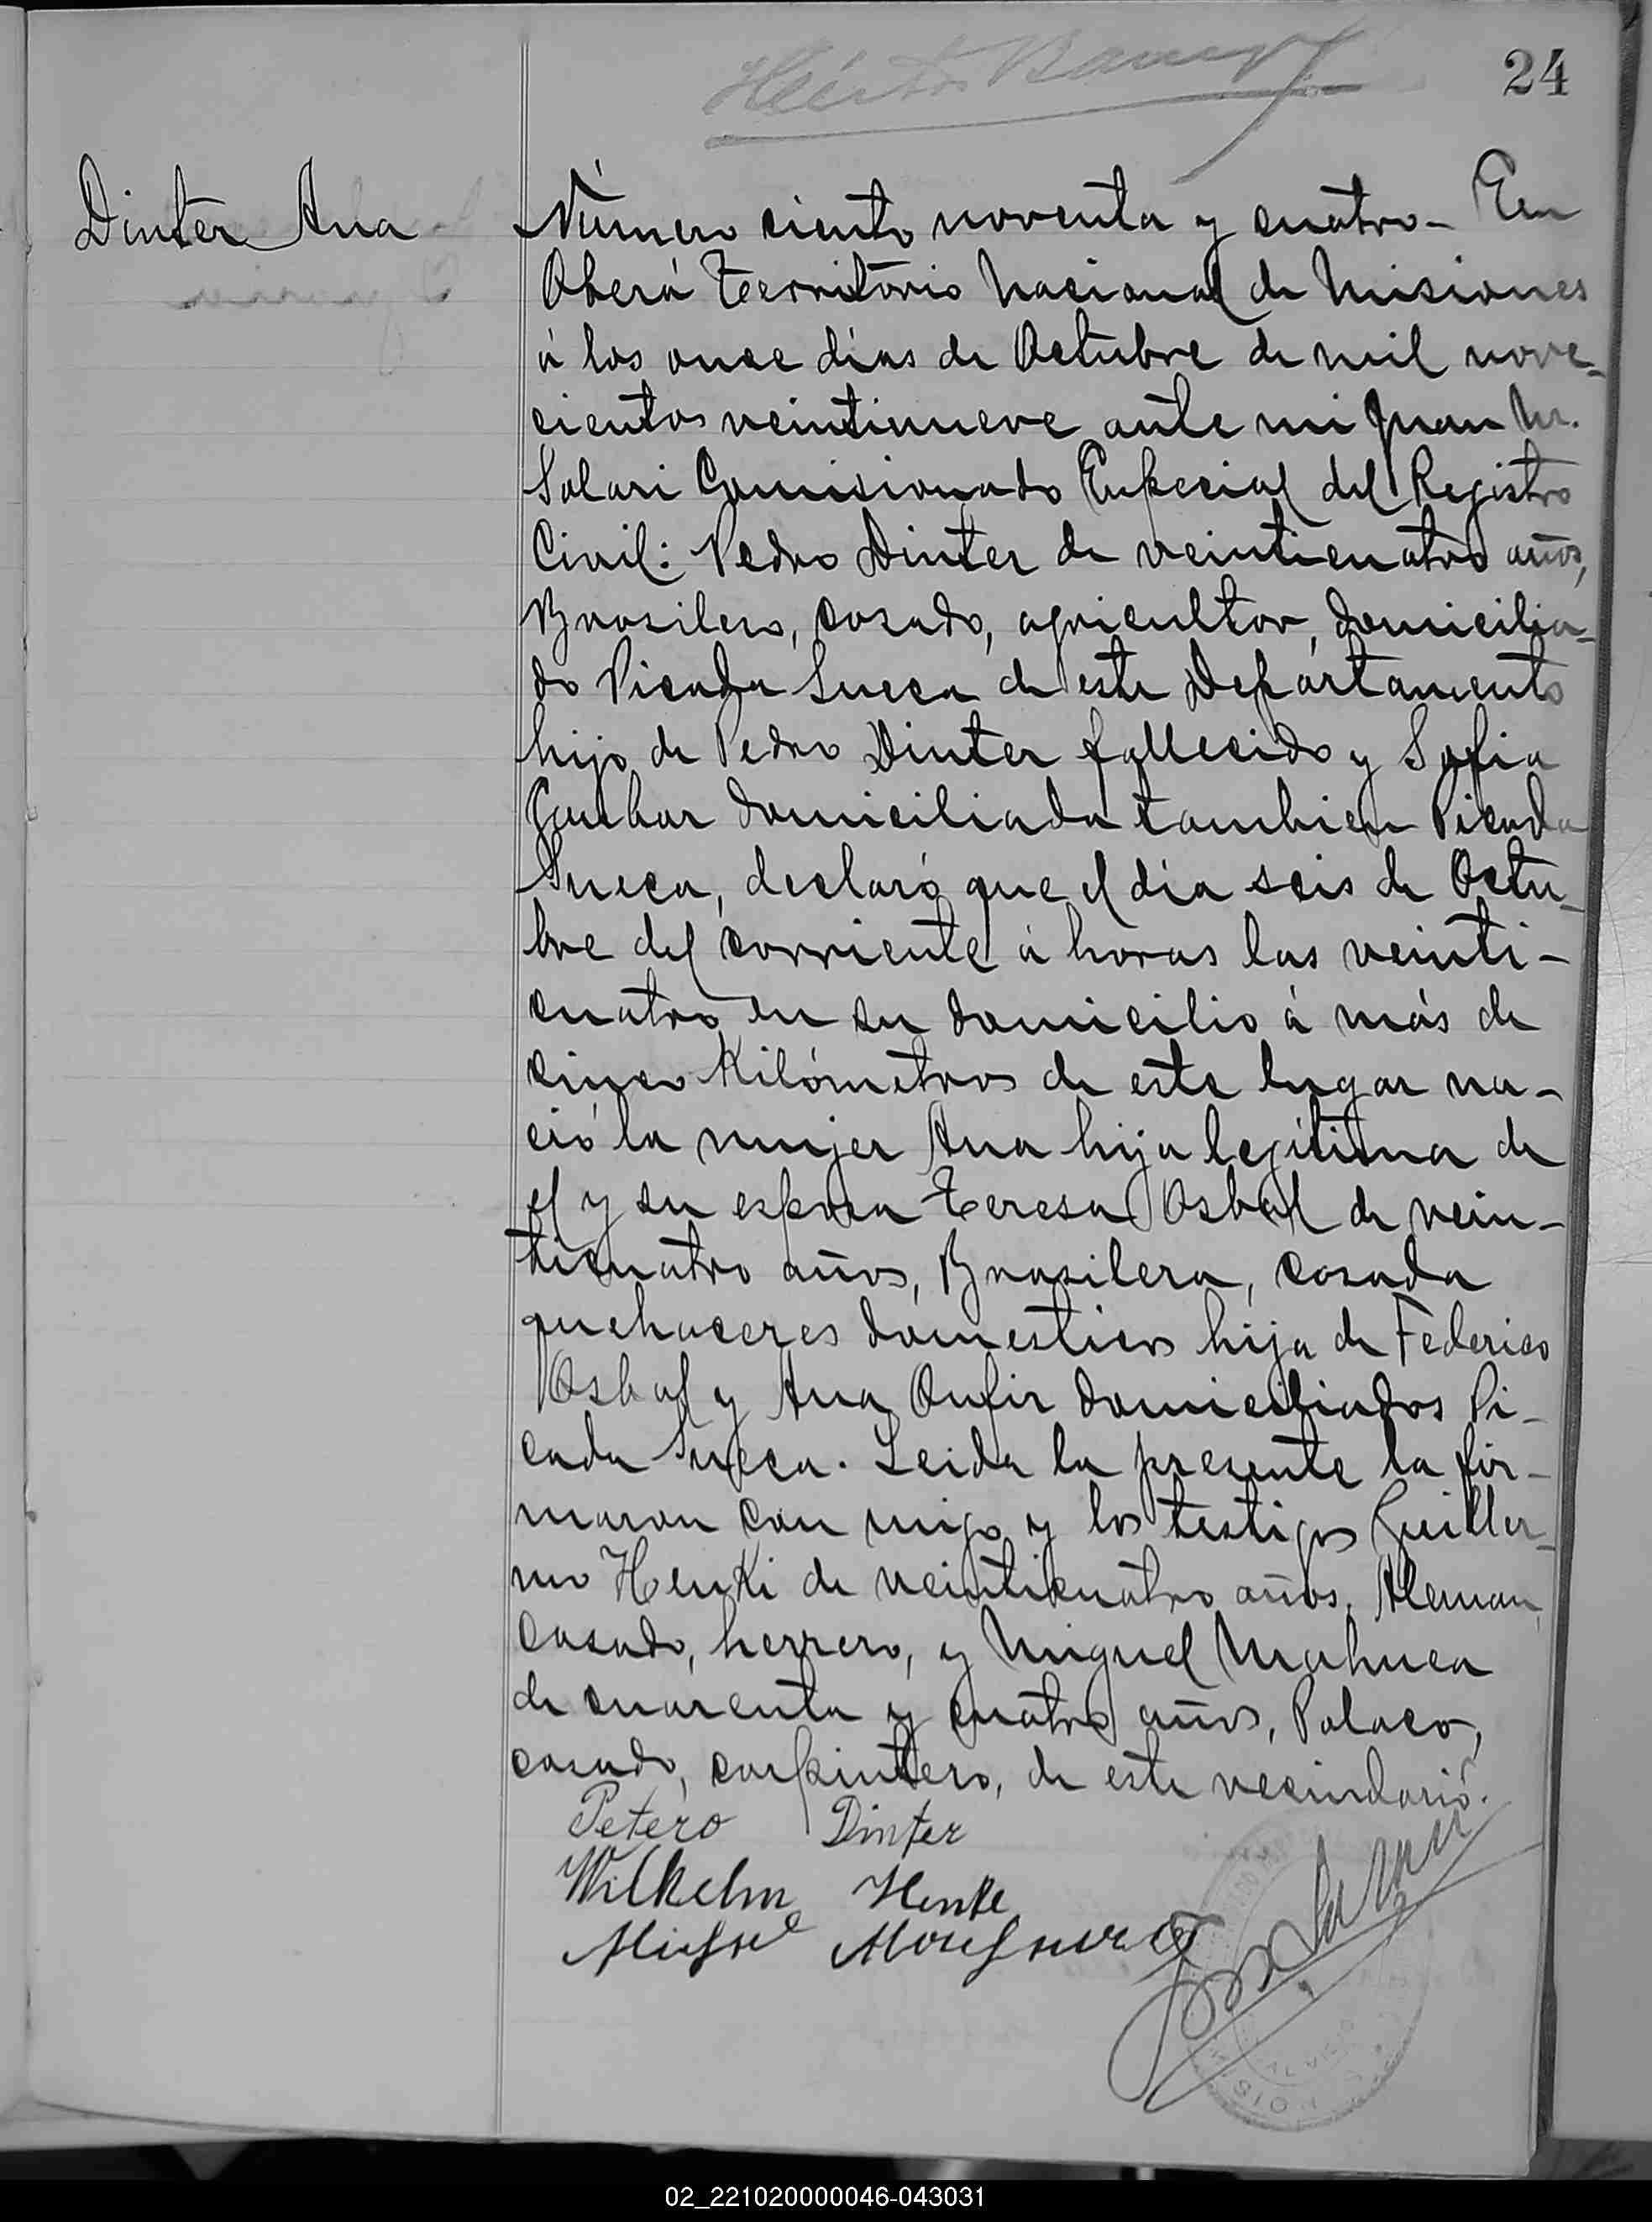 24
Dinter Ana
Número ciento noventa y cuatro- En
Oberá Territorio Nacional de Misiones
á los once días de Octubre de mil nove-
cientos veintinueve ante mi Juan M.
Solari Comisionado Especial del Registro
Civil: Pedro Dinter de veinticuatro años,
Brasilero, casado, agricultor, domicilia-
do Picada Sueca de este Departamento
hijo de Pedro Dinter fallecido y Sofia
domiciliada tambien Picada
Sueca, declaró que el día seis de Octu-
bre del corriente á horas las veinti-
cuatro en su domicilio á más de
cinco Kilómetros de este lugar na-
ció la mujer Ana hija legítima de
el y su esposa Teresa Osbal de vein-
ticuatro años, Brasilera, casada
quehaceres domesticos hija de Federico
Osbal y Ana domiciliados Pi-
cada Sueca. Leida la presente la fir-
maron con migo y los testigos Guiller-
mo Henki de veinticuatro años, Aleman,
casado, herrero, y Miguel Mahuca
de cuarenta y cuatro años, Polaco,
casado, carpintero, de este vecindario.
Petero Dinter
Wilhelm Henke
02_221020000046-043031